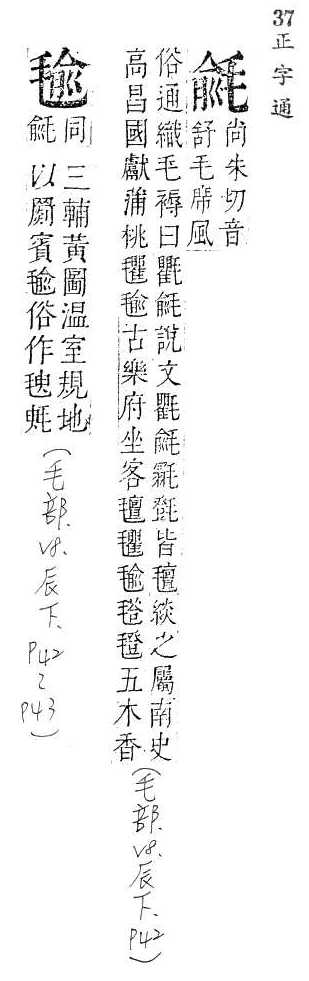 37正字通
毹
尚朱切音
舒毛席風
俗通織毛褥曰氍毹說文氍毹毾㲪皆氈緂之屬南史
高昌國獻蒲桃氍毹古樂府坐客氈氍毹毾㲪五木香
(毛部.V8.辰下.P42)
毹
同
毹
三輔黃圖温室規地
以罽賓毹俗作
(毛部.V8.辰下.P42~P43)